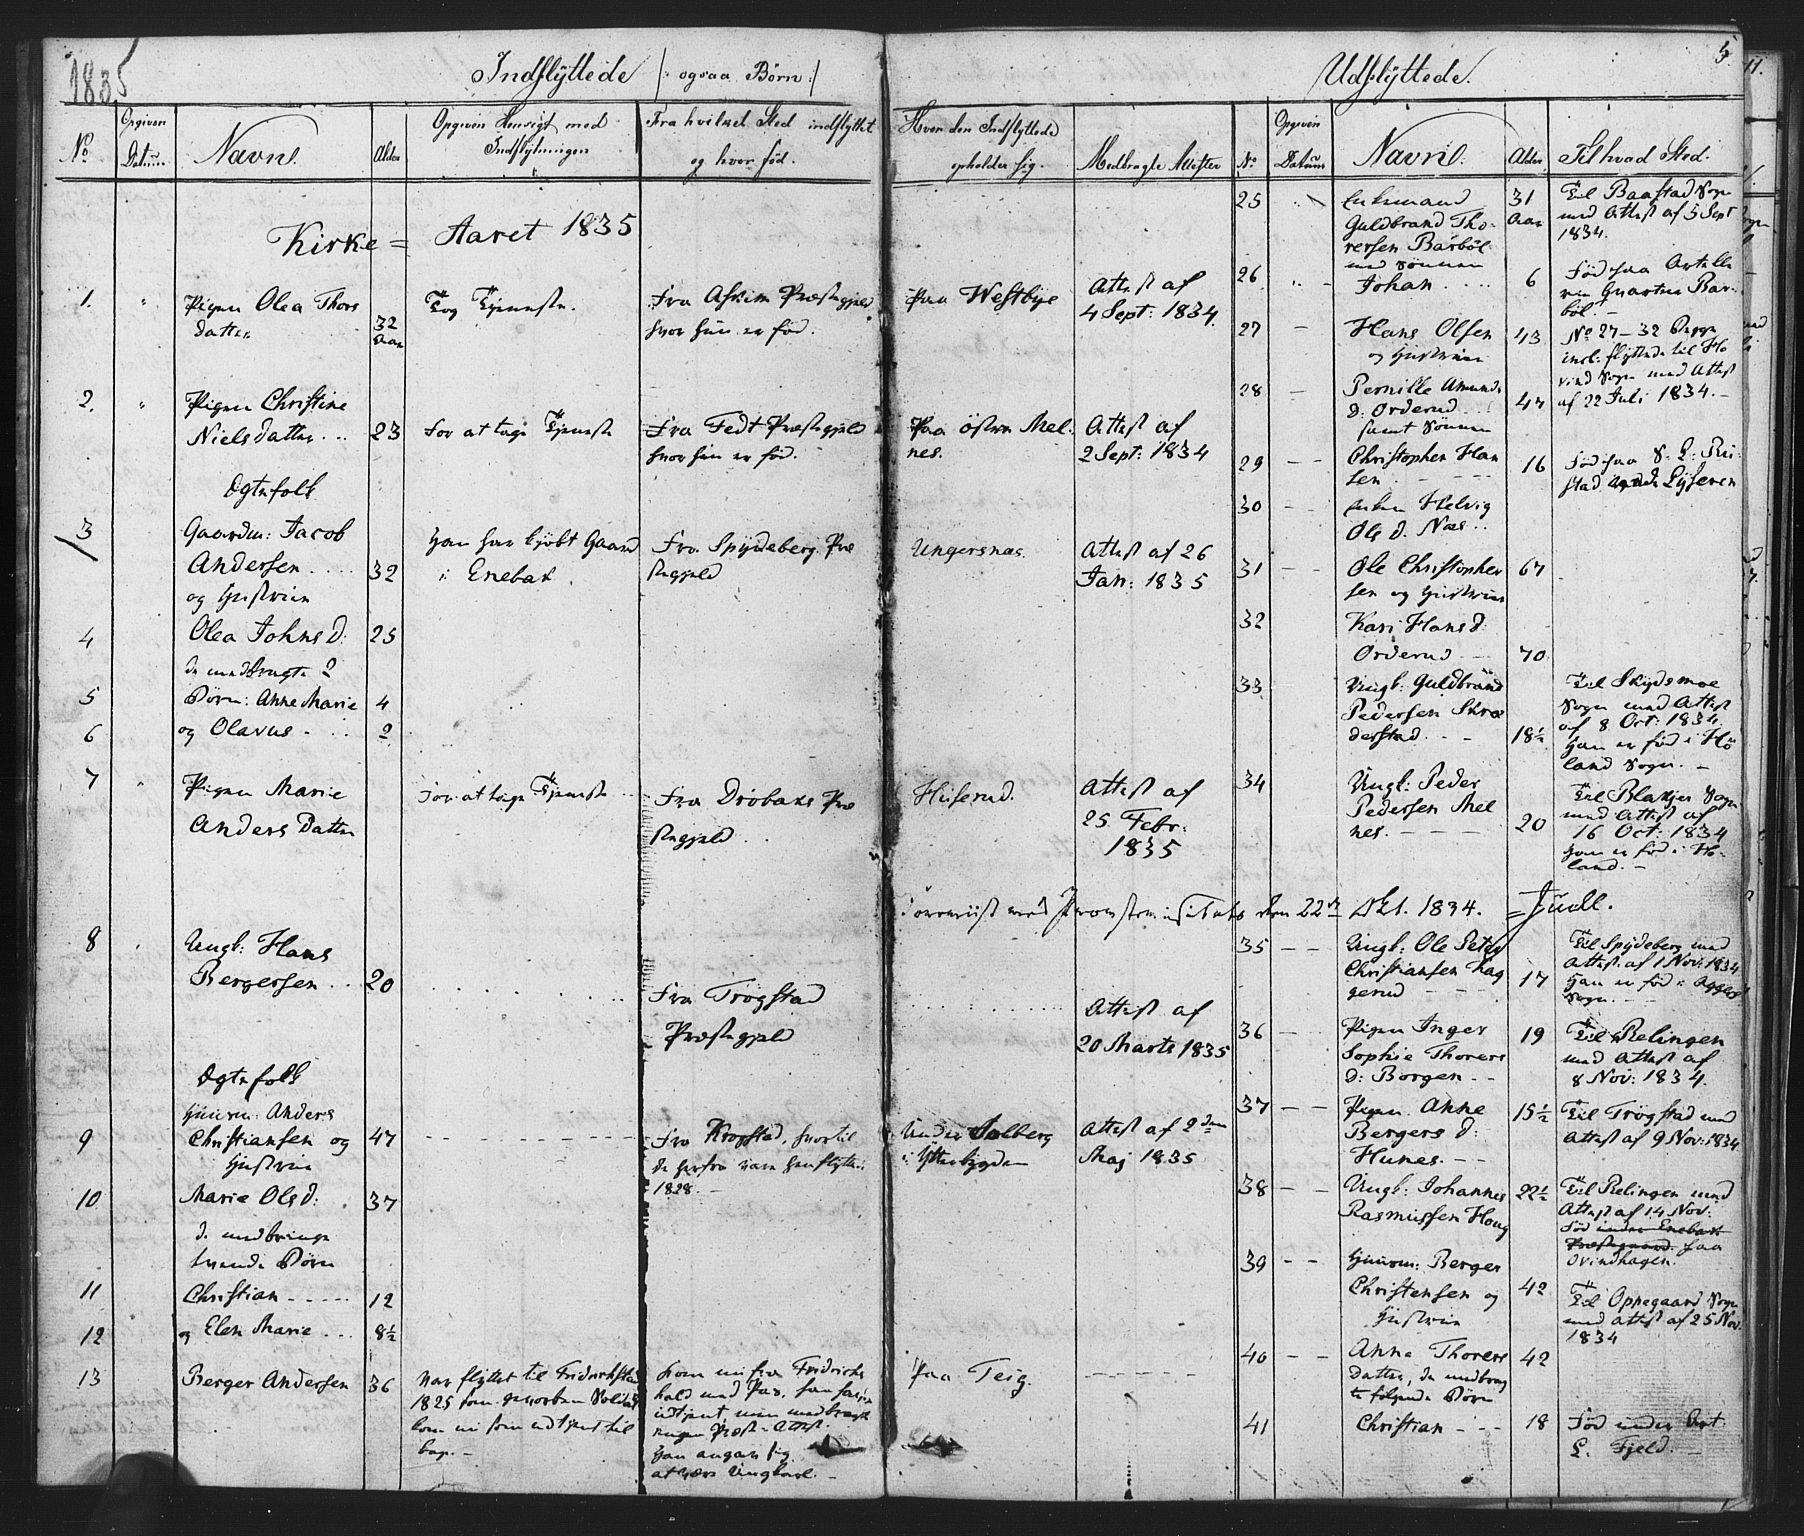 1835
Indflÿttede |: ogsaa Børn :|
No
Opgiven Datum.
Navne.
Alder
Opgiven Hensigt med Indflytningen
Fra hvilket Sted indflÿttet og hvor fød.
Hvor den Indflyttede opholder sig.
Medbragte Attester
Kirke = Aaret 1835
1. " Pigen Olea Thors
datter 32 Aar
Tog Tjeneste.
Fra Askim Præstegjeld
hvor hun er fød.
paa Westbye
Attest af
4 Sept: 1834.
2. " Pigen Christine
Nielsdatter... 23
for at tage Tjeneste
Fra Fedt Præstegjeld
hvor hun er fød.
Paa østre Mel-
nes.
Attest af
2 Sept: 1834
Ægtefolk
3 Gaardm: Jacob
Andersen ..... 32
og Hustruen
han har kjøbt Gaard
i Enebak.
Fra Spÿdeberg Præ
stegjeld
Ungersnæs.
Attest af 26
Jan: 1835
4 Olea Johns D: 25
de medbragte 2
5 Børn: Anne Marie 4
6 og Olavus - 2
7 " Pigen Marie
Anders Datter
for at tage Tjeneste ..
Fra Drøbaks Præ
stegjeld
Huserud.
Attest af
25 Febr:
1835
8 Ungk: Hans
Bergersen .. 20
Fra Trøgstad
Præstegjeld
Attest af
20 Marts 1835
Ægtefolk
Huusm: Anders
9 Christiansen og 47
Hustrue
Fra Krogstad, hvortil
de herfra vare henflyttede
1828.
Under Solberg
i Ytterbygden
Attest af 2den
Maj 1835
10 Marie Ols d: 37
de medbringe
tvende Børn
11 Christian ----- 12
12 og Elen Marie ... 8½
13 Berger Andersen 36
var flyttet til Fridrichstad
1825 som geworben Soldat
kom nu som udtjent til
bage.
kom nu fra Fridrichs
hald med Pas,
udtjent, men medbragte
ingen Præste-Attest
han angav sig
at være Ungkarl. -
paa Teig.
5.
Udflÿttede.
No.
Opgiven Datum
Navne.
Alder
Til hvad Sted.
25 Enkemand 31 Aar
Guldbrand Tho-
rersen Barbøl
med Sønnen
Til Baastad Sogn
med Attest af 5 Sept
1834.
26 Johan ..... 6
Fød paa
Qvarteer Bar-
bøl. -
27 Hans Olsen 43
og Hustrue
No 27-32 Begge
incl: flyttede til Ho
vind Sogn med Attest
af 22 Juli 1834. -
28 Pernille Amunds
d: Orderud.... 47
samt Sønnen
29 Christopher Han 16
sen
Fød paa
stad Lÿseren
30 Enken Helvig
Ols d. Næs ..
31 Ole Christopher 67
sen og Hustrue
32 Kari Hans d:
Orderud --- 70
33 Ungk: Guldbrand
Pedersen Skræ
derstad. 18½
Til Skydsmoe
Sogn med Attest
af 8 Oct: 1834.
han er fød i Hø
land Sogn. -
34 Ungk: Peder
Pedersen Mel
nes. ---- 20
Til Blakjer Sogn
med Attest af
16 Oct: 1834
han er fød i Hø-
land. -
den 22de Oct. 1834. = Juell.
35 Ungk: Ole Peter
Christiansen Rag 17
gerud
Til Spÿdeberg med
Attest af 1 Nov: 1834
han er fød i Aggers
Sogn. -
36 Pigen Inger 19
Sophie Thorers
d: Borgen --
Til Relingen
med Attest af
8 Nov: 1834.
37 Pigen Anne 15½
Bergers d:
Hunes. --
Til Trøgstad med
Attest af 9 Nov: 1834
38 Ungk: Johannes 22½
Rasmussen Houg
Til Relingen med
Attest af 14 Nov:
Fød under Enebak
Præstegaard. paa
Qvindhagen.
39 Huusm: Berger
Christensen og 42
Hustrue
Til Oppegaard Sogn
med Attest af 25 Nov.
1834
40 Anne Thorers 42
datter, de medbrag
te følgende Børn
41 Christian --- 18
Fød under
Fjeld.